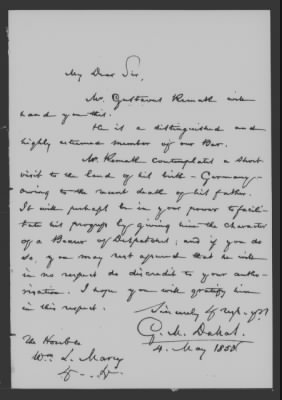 My Dear Sir,
Mr. Gustavus Remak will
hand you this.
He is a distinguished and
highly esteemed member of our Bar.
Mr. Remak contemplates a short
visit to the land of his birth - Germany -
owing to the recent death of his father.
It will perhaps be in your power to facili-
tate his progress by giving him the character
of a Bearer of Despatches; and if you do
so, you may rest assured that he will
in no respect do discredit to your autho-
risation. I hope you will gratify him
in this respect.
Sincerely &
G. M. Dallas.
4. May 185
The Honble
Wm. L. Marcy